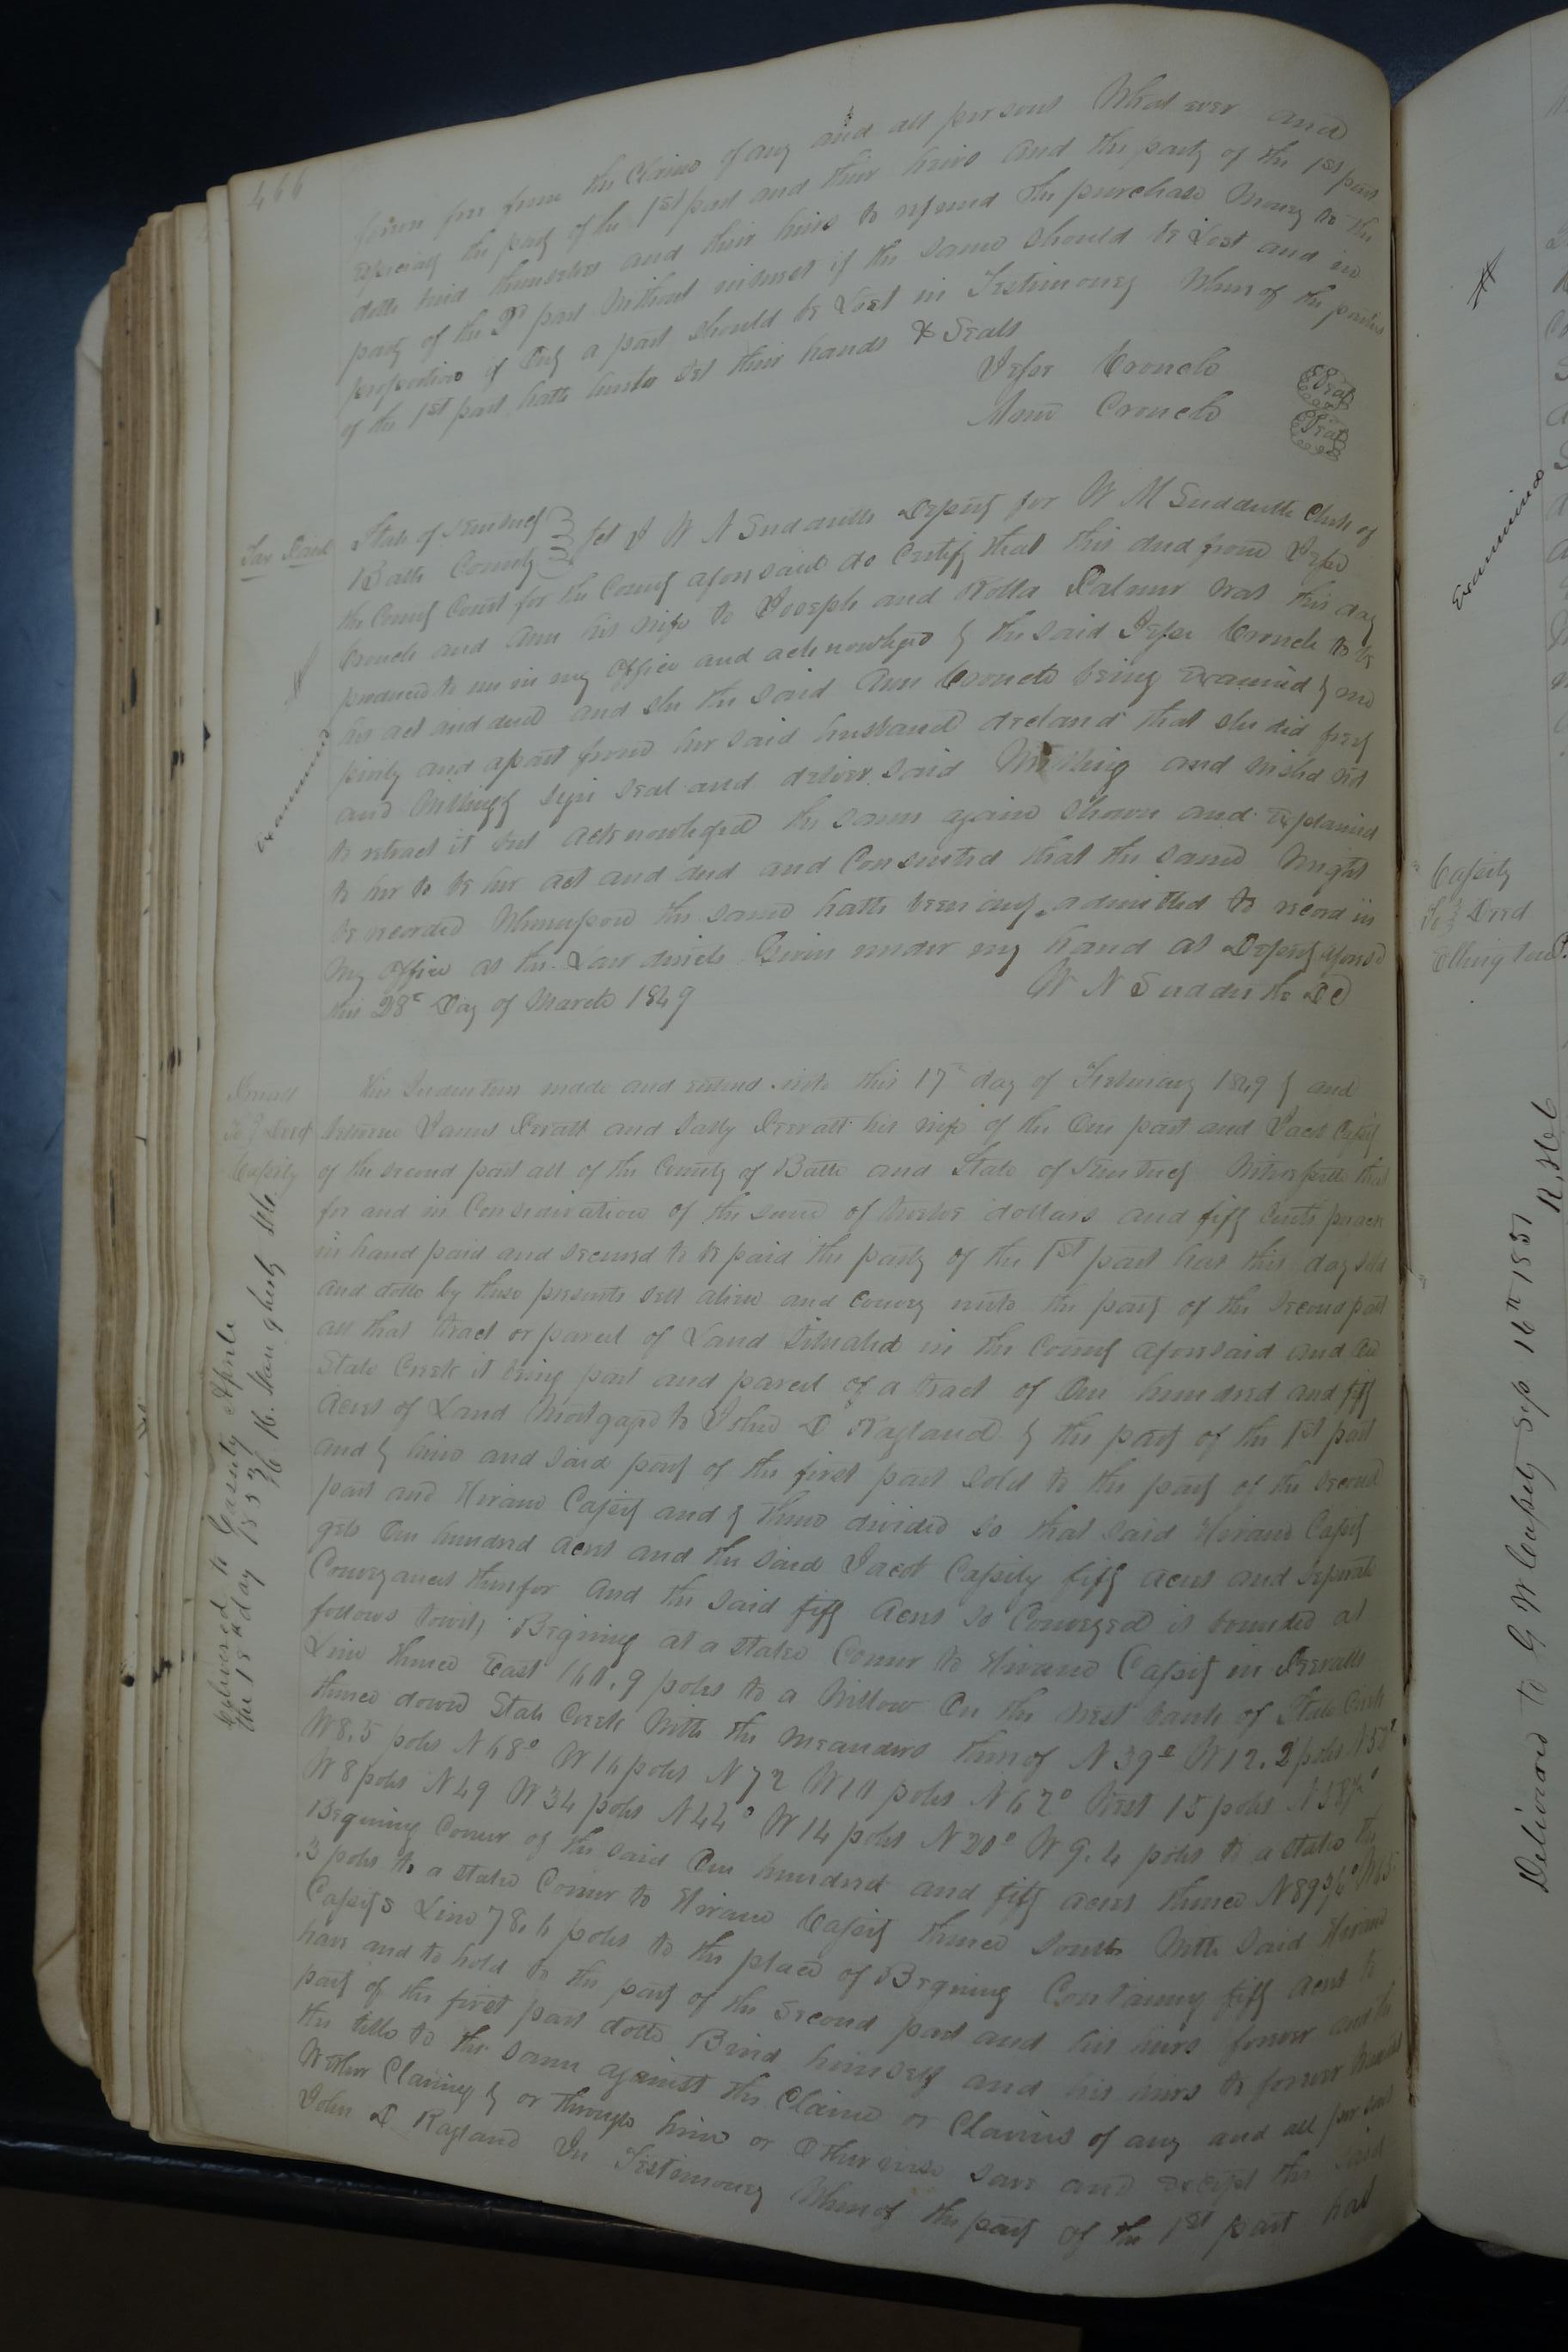 466
forever free from the Claims of any and all persons What ever and
especially the party of the 1st part and their heirs and the party of the 1st part
doth bind themselves and their heirs to refund the purchase Money to the
party of the 2d part Without interest if the same should be Lost and in
proportion if Only a part should be Lost in Testimoney Whereof the parties
of the 1st part hath hereto set their hands & Seals
Jesse Crouch Seal
Crouch Seal
Tax Paid
Examined
State of Kentucky
Bath County Sct I W N Sudduth Deputy for W M Sudduth Clerk of
the County Court for the County aforesaid do Certify that this deed from Jesse
Crouch and Ann his wife to Joseph and Rolla Palmer was this day
produced to me in my Office and acknowledged by the said Jesse Crouch to be
his act and deed and she the said Ann Crouch being Examined by me
privily and apart from her said husband declared that she did freely
and Willingly sign seal and deliver said Writing and wished not
to retract it but acknowledged the same again shown and Explained
to her to be her act and deed and Consented that the same Might
be recorded Whereupon the same hath been duly admitted to record in
My Office as the Law directs Given under my hand as Deputy aforesd
this 28th Day of March 1849 W N Suddueth DC
Deed
Cassity
This Indenture made and entered into this 17th day of February 1849 by and
between James and Sally his wife of the One part and Jacob Cassity
of the second part all of the County of Bath and State of Kentucky Witnesseth that
for and in Consideration of the sum of twelve dollars and fifty cents per acre
in hand paid and secured to be paid the party of the 1st part has this day sold
and doth by these presents sell alien and convey unto the party of the second part
all that tract or parcel of Land Situated in the County aforesaid and On
State Creek it being part and parcel of a tract of One hundred and fifty
Acres of Land Mortgaged to John D Ragland by the party of the 1st part
and by him and said party of the first part sold to the party of the second
part and Hiram Cassity and by them divided so that said Hiram Cassity
gets One hundred acres and the said Jacob Cassity fifty acres and separate
Conveyances therefor and the said fifty acres so Conveyed is bounded as
follows towit, Begining at a stake Corner to Hiram Cassity in
Line thence East 160.9 poles to a Willow On the West bank of State Creek
thence down State Creek With the meanders thereof N 39° W 12.2 poles
W 8.5 poles N 68° W 16 poles N 72 W 10 poles N 62° West 15 poles
W 8 poles N 49 W 34 poles N 44° W 14 poles N 20° W 9.4 poles to a stake the
Begining Corner of the said One hundred and fifty acres thence
.3 poles to a stake Corner to Hiram Cassity thence South With said Hiram
Cassitys Line 78.6 poles to the place of Begining Containing fifty acres to
have and to hold to the party of the second part and his heirs forever and the
party of the first part doth Bind himself and his heirs to forever
the title to the same against the Claim or Claims of any and all persons
Wether Claiming by or through him or Otherwise save and except the said
John D Ragland In Testimoney Whereof the party of the 1st part has
Delivered to Cassity
the 15th day 1853
Examined
Cassity
To Deed
Delivered to G W Cassity Sep 16th 1851